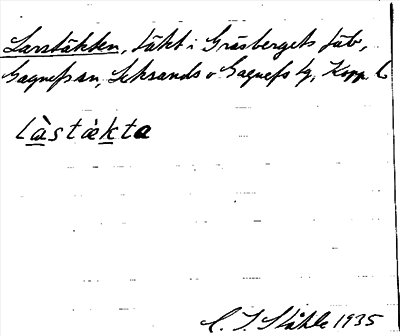 Larstäkten, täkt i Gräsbergets fäb,
Gagnefs sn, Leksands o Gagnefs tg, Kopp. l
làstàkta
C. I. Ståhle 1935